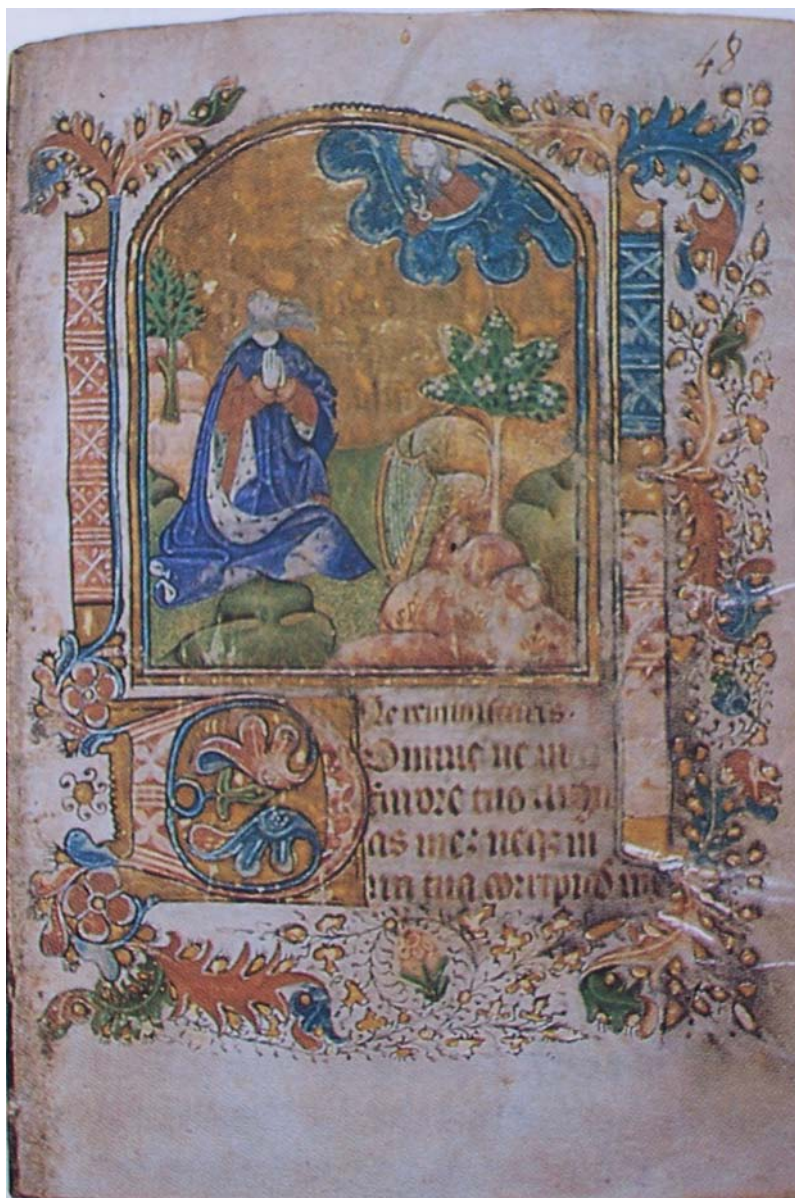 48
Ne reminiscaris.
Domine ne in
furore tuo argu
as me: neqz in
ira tua corripias me